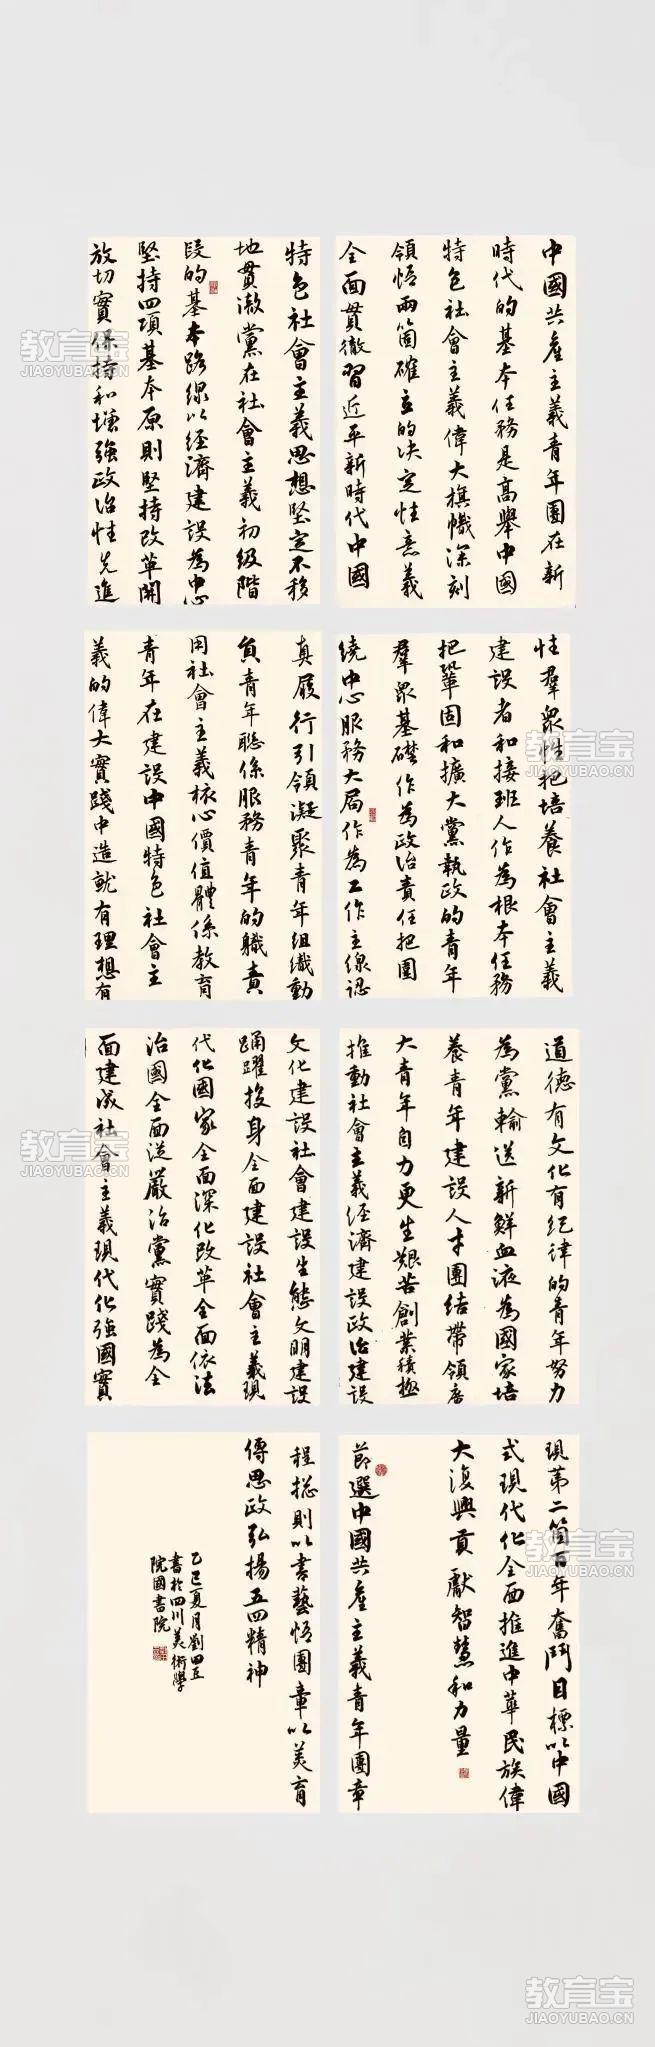 中國共產主義青年團在新
時代的基本任務是高舉中國
特色社會主義偉大旗幟深刻
領悟兩箇確立的決定性意義
全面貫徹習近平新時代中國
特色社會主義思想堅定不移
地貫澈黨在社會主義初級階
段的基本路線以經濟建設為中心
堅持四項基本原則堅持改革開
放切實保持和增強政治性先進
性羣眾性把培養社會主義
建設者和接班人作為根本任務
把鞏固和擴大黨執政的青年
羣眾基礎作為政治責任把圍
繞中心服務大局作為工作主線認
真履行引領凝聚青年組織動
員青年聯係服務青年的職責
用社會主義核心價值體係教育
青年在建設中國特色社會主
義的偉大實踐中造就有理想有
道德有文化有紀律的青年努力
為黨輸送新鮮血液為國家培
養青年建設人才團結帶領廣
大青年自力更生艱苦創業積極
推動社會主義經濟建設政治建設
文化建設社會建設生態文明建設
踊躍投身全面建設社會主義現
代化國家全面深化改革全面依法
治國全面從嚴治黨實踐為全
面建成社會主義現代化強國實
現第二箇百年奮鬥目標以中國
式現代化全面推進中華民族偉
大復興貢獻智慧和力量
節選中國共產主義青年團章
程總則以書藝悟團章以美育
傳思政弘揚五四精神
乙巳夏月劉四五
書於四川美術學
院國書院
教育宝
JIAOYUBAO.CN
教育宝
JIAOYUBAO.CN
教育宝
JIAOYUBAO.CN
教育宝
JIAOYUBAO.CN
教育宝
JIAOYUBAO.CN
教育宝
JIAOYUBAO.CN